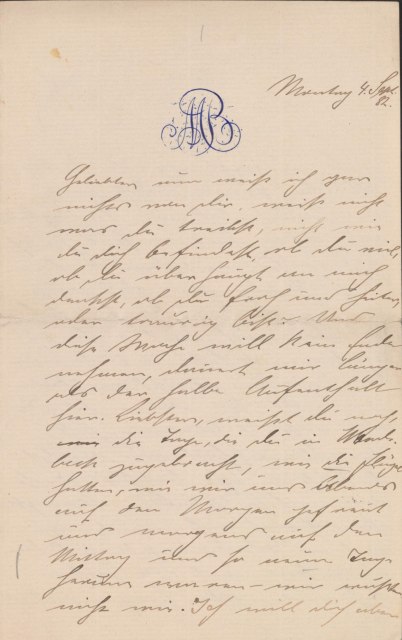 MB
Montag 4. Sept.
82.
Geliebter nun weiß ich gar
nichts von dir, weiß nicht
was du treibst, nicht wie
du dich befindest, ob du viel,
ob du überhaupt an mich
denkst, ob du froh und heiter,
oder traurig bist? Und
diese Woche will kein Ende
nehmen, dauert mir länger
als der halbe Aufenthalt
hier. Liebster, weißt du noch,
die Tage, die du in Wands-
beck zugebracht, wie die Flügel
hatten, wie wir uns Abends
auf den Morgen gefreut
und morgens auf den
Mittag und so neun Tage
herum waren – wir wußten
nicht wie. Ich will dich aber